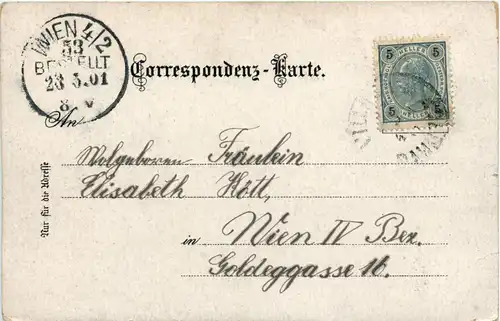 WIEN 4/2
53
BESTELLT
23.5.01
8 V
Correspondenz-Karte.
5 HELLER 5
5 HELLER 5
An
Nur für die Adresse
Wolgeboren Fräulein
Elisabeth Hött,
in Wien IV Bez.
Goldeggasse 16.